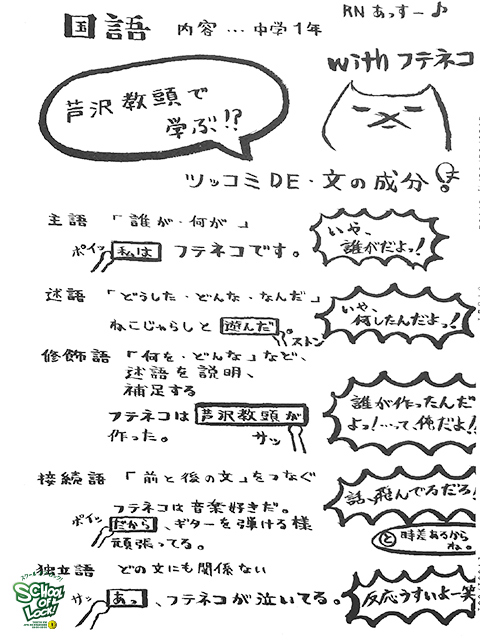 国語 内容…中学1年
RN あっすー♪
with フテネコ
芦沢教頭で
学ぶ!?
ツッコミDE・文の成分
主語 「誰が・何が」
ポイッ 私は フテネコです。
いや、
誰がだよっ!
述語 「どうした・どんな・なんだ」
ねこじゃらしと 遊んだ 。
ストン
いや、
何したんだよっ!
修飾語 「何を・どんな」など、
述語を説明、
補足する
フテネコは 芦沢教頭が
作った。 サッ
誰が作ったんだ
よっ!…って、俺だよ!!
接続語 「前と後の文」をつなぐ
フテネコは音楽好きだ。
ポイッ だから 、ギターを弾ける様
頑張ってる。
話、飛んでるだろ!
と 時差あるから
ね。
独立語 どの文にも関係ない
サッ あっ 、フテネコが泣いてる。
反応うすいよー笑
SCHOOL
OF
LOCK!